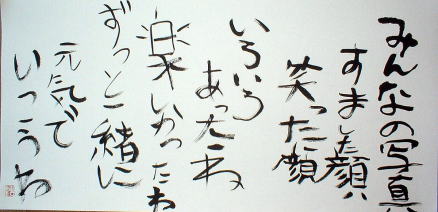 みんなの写真
すました顔
笑った顔
いろいろ
あったね
楽しかったね
ずっと一緒に
元気で
いっうね